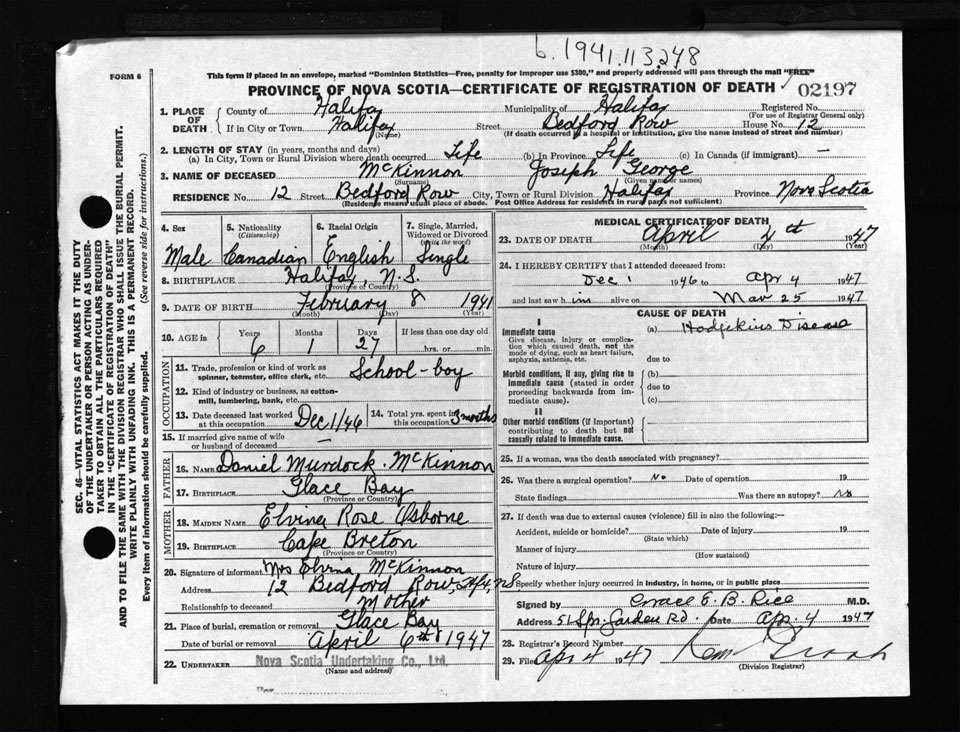 b. 1941.113278
FORM 6
This form if placed in an envelope, marked "Dominion Statistics—Free, penalty for improper use $300," and properly addressed will pass through the mail "FREE"
PROVINCE OF NOVA SCOTIA—CERTIFICATE OF REGISTRATION OF DEATH
02197
1. PLACE OF DEATH
County of Halifax Municipality of Halifax Registered No.
(For use of Registrar General only)
If in City or Town Halifax Street Bedford Row House No. 12
(Name) (If death occurred in a hospital or institution, give the name instead of street and number)
2. LENGTH OF STAY (in years, months and days)
(a) In City, Town or Rural Division where death occurred Life (b) In Province Life (c) In Canada (if immigrant) —
3. NAME OF DECEASED McKinnon Joseph George
(Surname) (Given name or names)
RESIDENCE No. 12 Street Bedford Row City, Town or Rural Division Halifax Province Nova Scotia
(Residence means usual place of abode. Post Office Address for residents in rural parts not sufficient)
4. Sex 5. Nationality (Citizenship) 6. Racial Origin 7. Single, Married, Widowed or Divorced (Write the word)
Male Canadian English Single
8. BIRTHPLACE Halifax, N.S.
(Province or Country)
9. DATE OF BIRTH February 8 1941
(Month) (Day) (Year)
10. AGE in Years Months Days If less than one day old
6 1 27 hrs. or min.
OCCUPATION
11. Trade, profession or kind of work as spinner, teamster, office clerk, etc. School-boy
12. Kind of industry or business, as cotton-mill, lumbering, bank, etc.
13. Date deceased last worked at this occupation Dec 1/46 14. Total yrs. spent in this occupation 3 months
15. If married give name of wife or husband of deceased —
FATHER
16. NAME Daniel Murdock McKinnon
17. BIRTHPLACE Glace Bay
(Province or Country)
MOTHER
18. MAIDEN NAME Elvina Rose Osborne
19. BIRTHPLACE Cape Breton
(Province or Country)
20. Signature of informant Mrs Elvina McKinnon
Address 12 Bedford Row, Hfx, NS
Relationship to deceased Mother
21. Place of burial, cremation or removal Glace Bay
Date of burial or removal April 6th 1947
22. UNDERTAKER Nova Scotia Undertaking Co., Ltd.
(Name and address)
MEDICAL CERTIFICATE OF DEATH
23. DATE OF DEATH April 4th 1947
(Month) (Day) (Year)
24. I HEREBY CERTIFY that I attended deceased from:
Dec 1 1946 to Apr 4 1947
and last saw him alive on Mar 25 1947
CAUSE OF DEATH
I
Immediate cause (a) Hodgekins Disease
Give disease, injury or complication which caused death, not the mode of dying, such as heart failure, asphyxia, asthenia, etc.
due to
Morbid conditions, if any, giving rise to immediate cause (stated in order proceeding backwards from immediate).
(b)
due to
(c)
II
Other morbid conditions (if important) contributing to death but not causally related to immediate cause.
25. If a woman, was the death associated with pregnancy?
26. Was there a surgical operation? No Date of operation 19
State findings Was there an autopsy? No
27. If death was due to external causes (violence) fill in also the following:—
Accident, suicide or homicide? Date of injury 19
(State which)
Manner of injury
(How sustained)
Nature of injury
Specify whether injury occurred in industry, in home, or in public place
Signed by Grace E. B. Rice M.D.
Address 51 Spr. Garden Rd. Date Apr. 4 1947
28. Registrar's Record Number
29. Filed Apr 4 1947
(Division Registrar)
SEC. 46—VITAL STATISTICS ACT MAKES IT THE DUTY
OF THE UNDERTAKER OR PERSON ACTING AS UNDER-
TAKER TO OBTAIN ALL THE PARTICULARS REQUIRED
IN THE "CERTIFICATE OF REGISTRATION OF DEATH"
AND TO FILE THE SAME WITH THE DIVISION REGISTRAR WHO SHALL ISSUE THE BURIAL PERMIT.
WRITE PLAINLY WITH UNFADING INK. THIS IS A PERMANENT RECORD.
Every item of information should be carefully supplied. (See reverse side for instructions.)